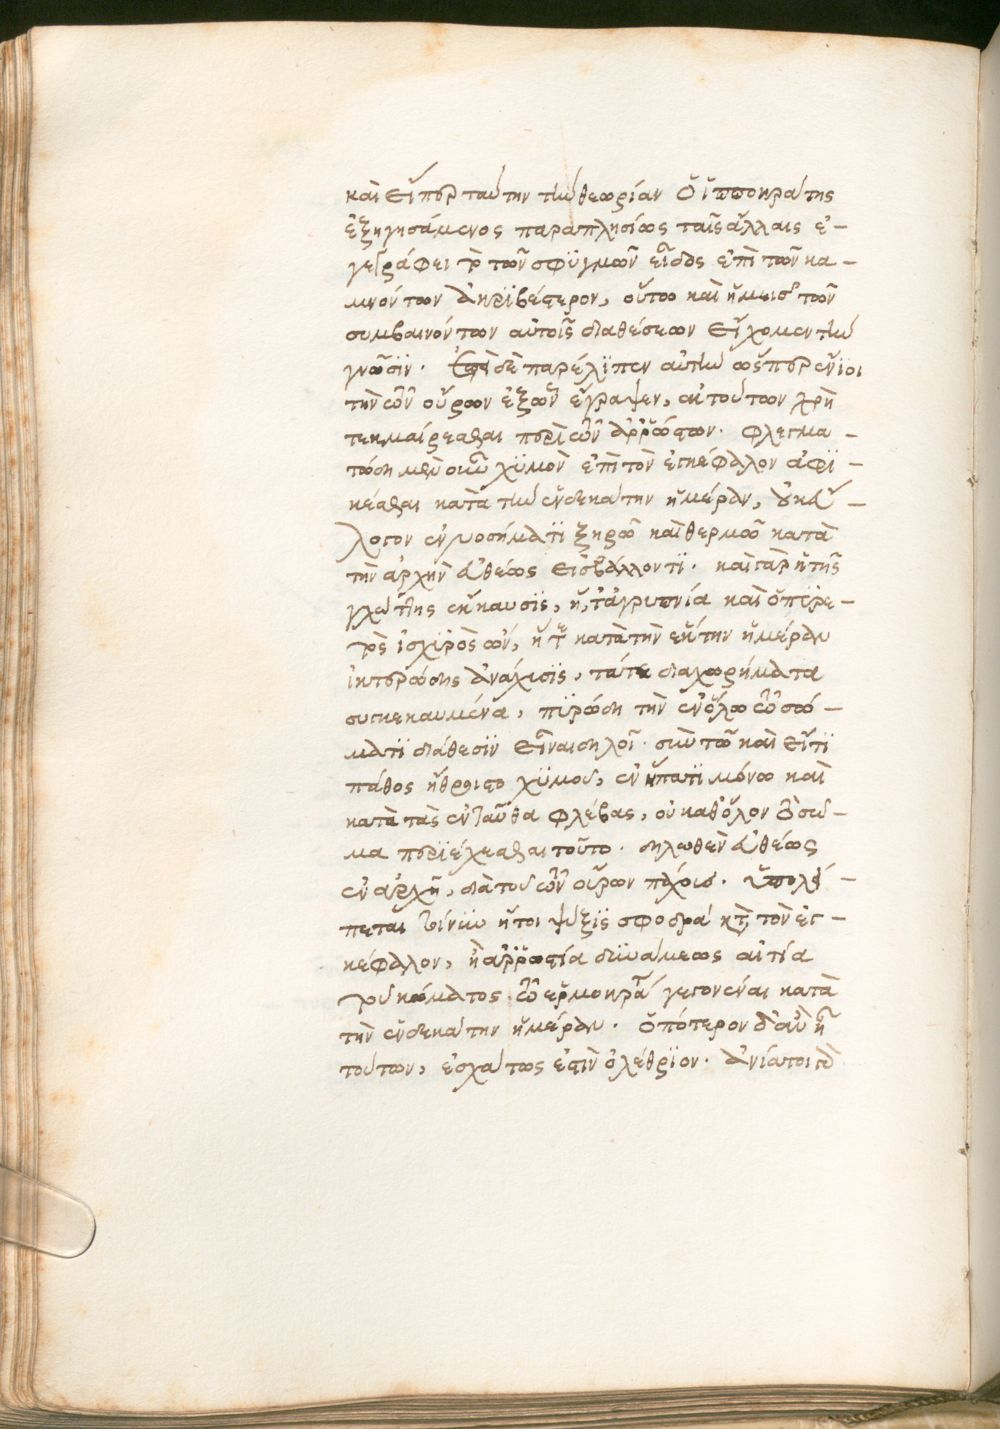 καὶ εἴπερ ταύτην τὴν θεωρίαν ὁ ἱπποκράτης
ἐξηγησάμενος παραπλησίως ταῖς ἄλλαις ἐ-
γεγράφει τὸ τῶν σφϋγμῶν εἶδος ἐπὶ τῶν κα-
μνόντων ἀκρϊβέστερον, οὕτω καὶ ἡμεῖς τῶν
συμβαινόντων αὐτοῖς διαθέσεων εἴχομεν τὴν
γνῶσϊν. ἐπεὶ δὲ παρέλϊπεν αὐτὴν ὥσπερ ἔνϊοι
τὴν τῶν οὔρων ἐξ ὧν ἔγραψεν, ἐκ τούτων χρὴ
τεκμαίρεσθαι περὶ τῶν ἀρρώστων. φλεγμα-
τώδη μὲν οὖν χϋμὸν ἐπὶ τὸν ἐγκέφαλον ἀφϊ-
κέσθαι κατὰ τὴν ἑνδεκάτην ἡμέραν, οὐκ εὔ-
λογον ἐν νοσήματϊ ξηρῷ καὶ θερμῷ κατὰ
τὴν ἀρχὴν εὐθέως εἰσβάλλοντϊ. καὶ γὰρ ἡ τῆς
γλώττης ἔκκαυσϊς, ἥ τ' ἀγρυπνία καὶ ὁ πϋρε-
τὸς ἰσχϋρὸς ὤν, ἥ τε κατὰ τὴν ἕκτην ἡμέραν
ἰκτερώδης ἀνάχυσϊς, τά τε διαχωρήματα
συγκεκαυμένα, πϋρώδη τὴν ἐν ὅλῳ τῷ σώ-
ματϊ διάθεσϊν εἶναι δηλοῖ. σὺν τῷ καὶ εἴ τϊ
πάθος ἤθροιστο χϋμοῦ, ἐν ἥπατϊ μόνῳ καὶ
κατὰ τὰς ἐνταῦθα φλέβας, οὐ καθ' ὅλον τὸ σῶ-
μα περϊέχεσθαι τοῦτο. δηλωθὲν εὐθέως
ἐν ἀρχῇ, διὰ τοῦ τῶν οὔρων πάχους. ὑπολεί-
πεται τοίνϋν ἤτοι ψῦξϊς σφοδρὰ κατὰ τὸν ἐγ-
κέφαλον, ἢ ἀρρωστία δϋνάμεως αἰτία
τοῦ κώματος τῷ ἑρμοκράτει γεγονέναι κατὰ
τὴν ἑνδεκάτην ἡμέραν. ὁπότερον δ' ἂν ᾖ
τούτων, ἐσχάτως ἐστὶν ὀλέθρϊον. ἀνίατοι τε